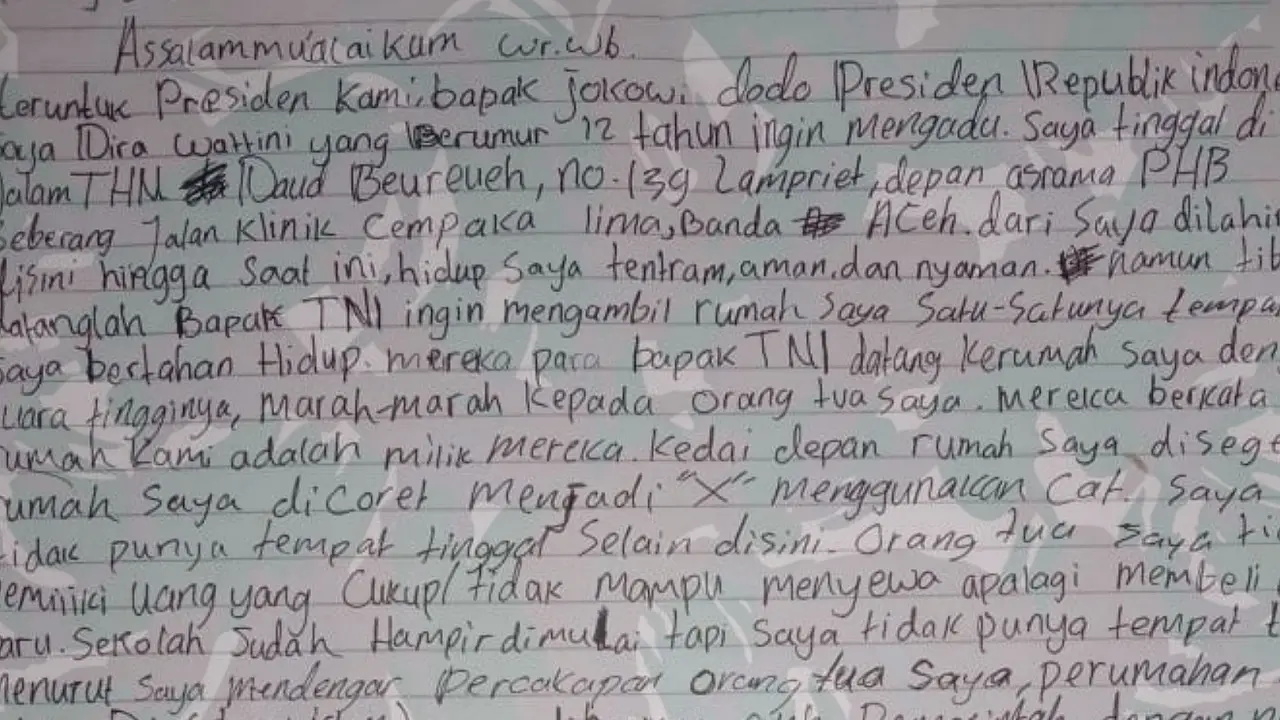 Assalammu'alaikum wr.wb.
teruntuk Presiden Kami, bapak jokowi dodo Presiden Republik indon
aya Dira wartini yang Berumur 12 tahun ingin mengadu. Saya tinggal di
alam THM Daud Beureueh, no.139 Lampriet, depan asrama PHB
seberang Jalan Klinik Cempaka lima, Banda ACeh. dari Saya dilahi
disini hingga saat ini, hidup Saya tentram, aman, dan nyaman. namun tib
atanglah Bapak TNI ingin mengambil rumah Saya Satu-Satunya tempa
saya bertahan Hidup. mereka para bapak TNI datang Kerumah Saya den
uara tingginya, Marah-marah Kepada orang tua Saya. Mereka berkata
umah Kami adalah milik mereka. Kedai depan rumah Saya disege
umah Saya diCoret Menjadi "X" menggunakan Cat. Saya
tidak punya tempat tinggal Selain disini. Orang tua Saya ti
emiliki Uang yang Cukup/tidak Mampu menyewa apalagi membeli
aru. Sekolah Sudah Hampir dimulai tapi Saya tidak punya tempat t
enurut Saya Mendengar Percakapan orang tua Saya, perumahan